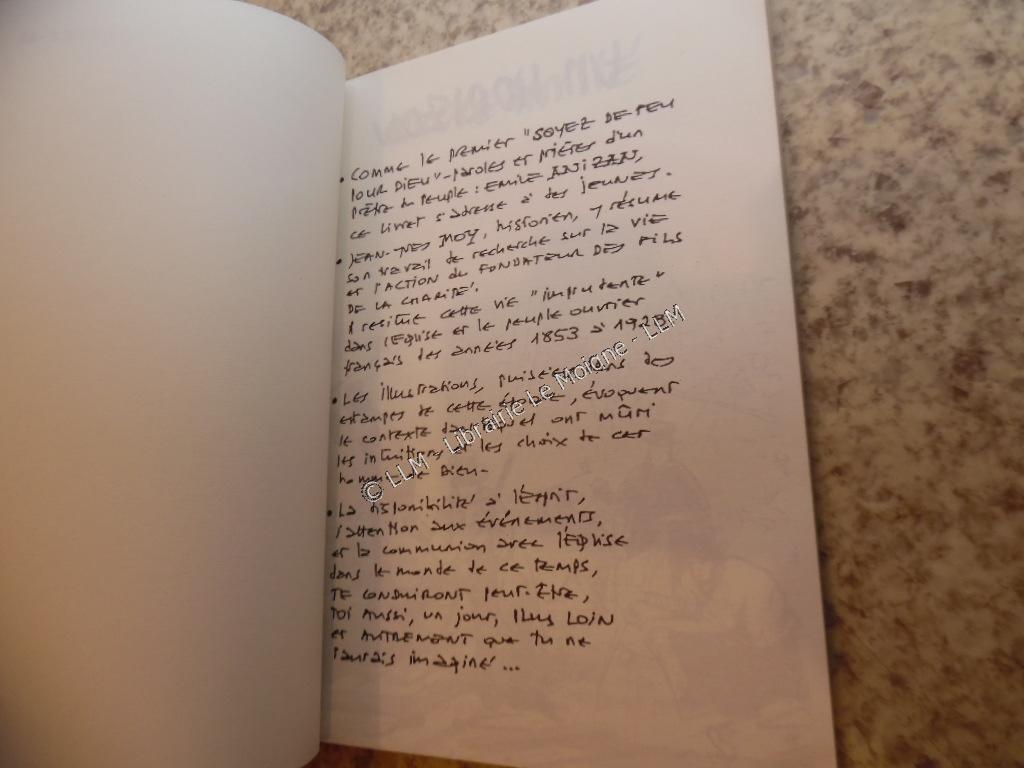 • COMME le premier "SOYEZ DE FEU
POUR DIEU" - paroles et prières d'un
prêtre du peuple : EMILE ANIZAN,
ce livret s'adresse à des jeunes.
• JEAN-YVES MOY, historien, y résume
son travail de recherche sur la vie
et l'action du FONDATEUR DES FILS
DE LA CHARITÉ.
Il resitue cette vie "imprudente"
dans l'Eglise et le peuple ouvrier
français des années 1853 à 1928.
• Les illustrations, puisées dans des
estampes de cette époque, évoquent
le contexte dans lequel ont mûri
les intuitions et les choix de cet
homme de Dieu.
• La disponibilité à l'Esprit,
l'attention aux événements,
et la communion avec l'Eglise
dans le monde de ce temps,
TE CONDUIRONT peut-être,
toi aussi, un jour, plus LOIN
et AUTREMENT que tu ne
l'aurais imaginé...
© LLM - Librairie Le Moigne - LLM